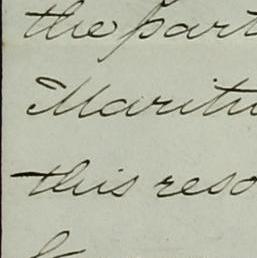 the part
Maritu
this reso